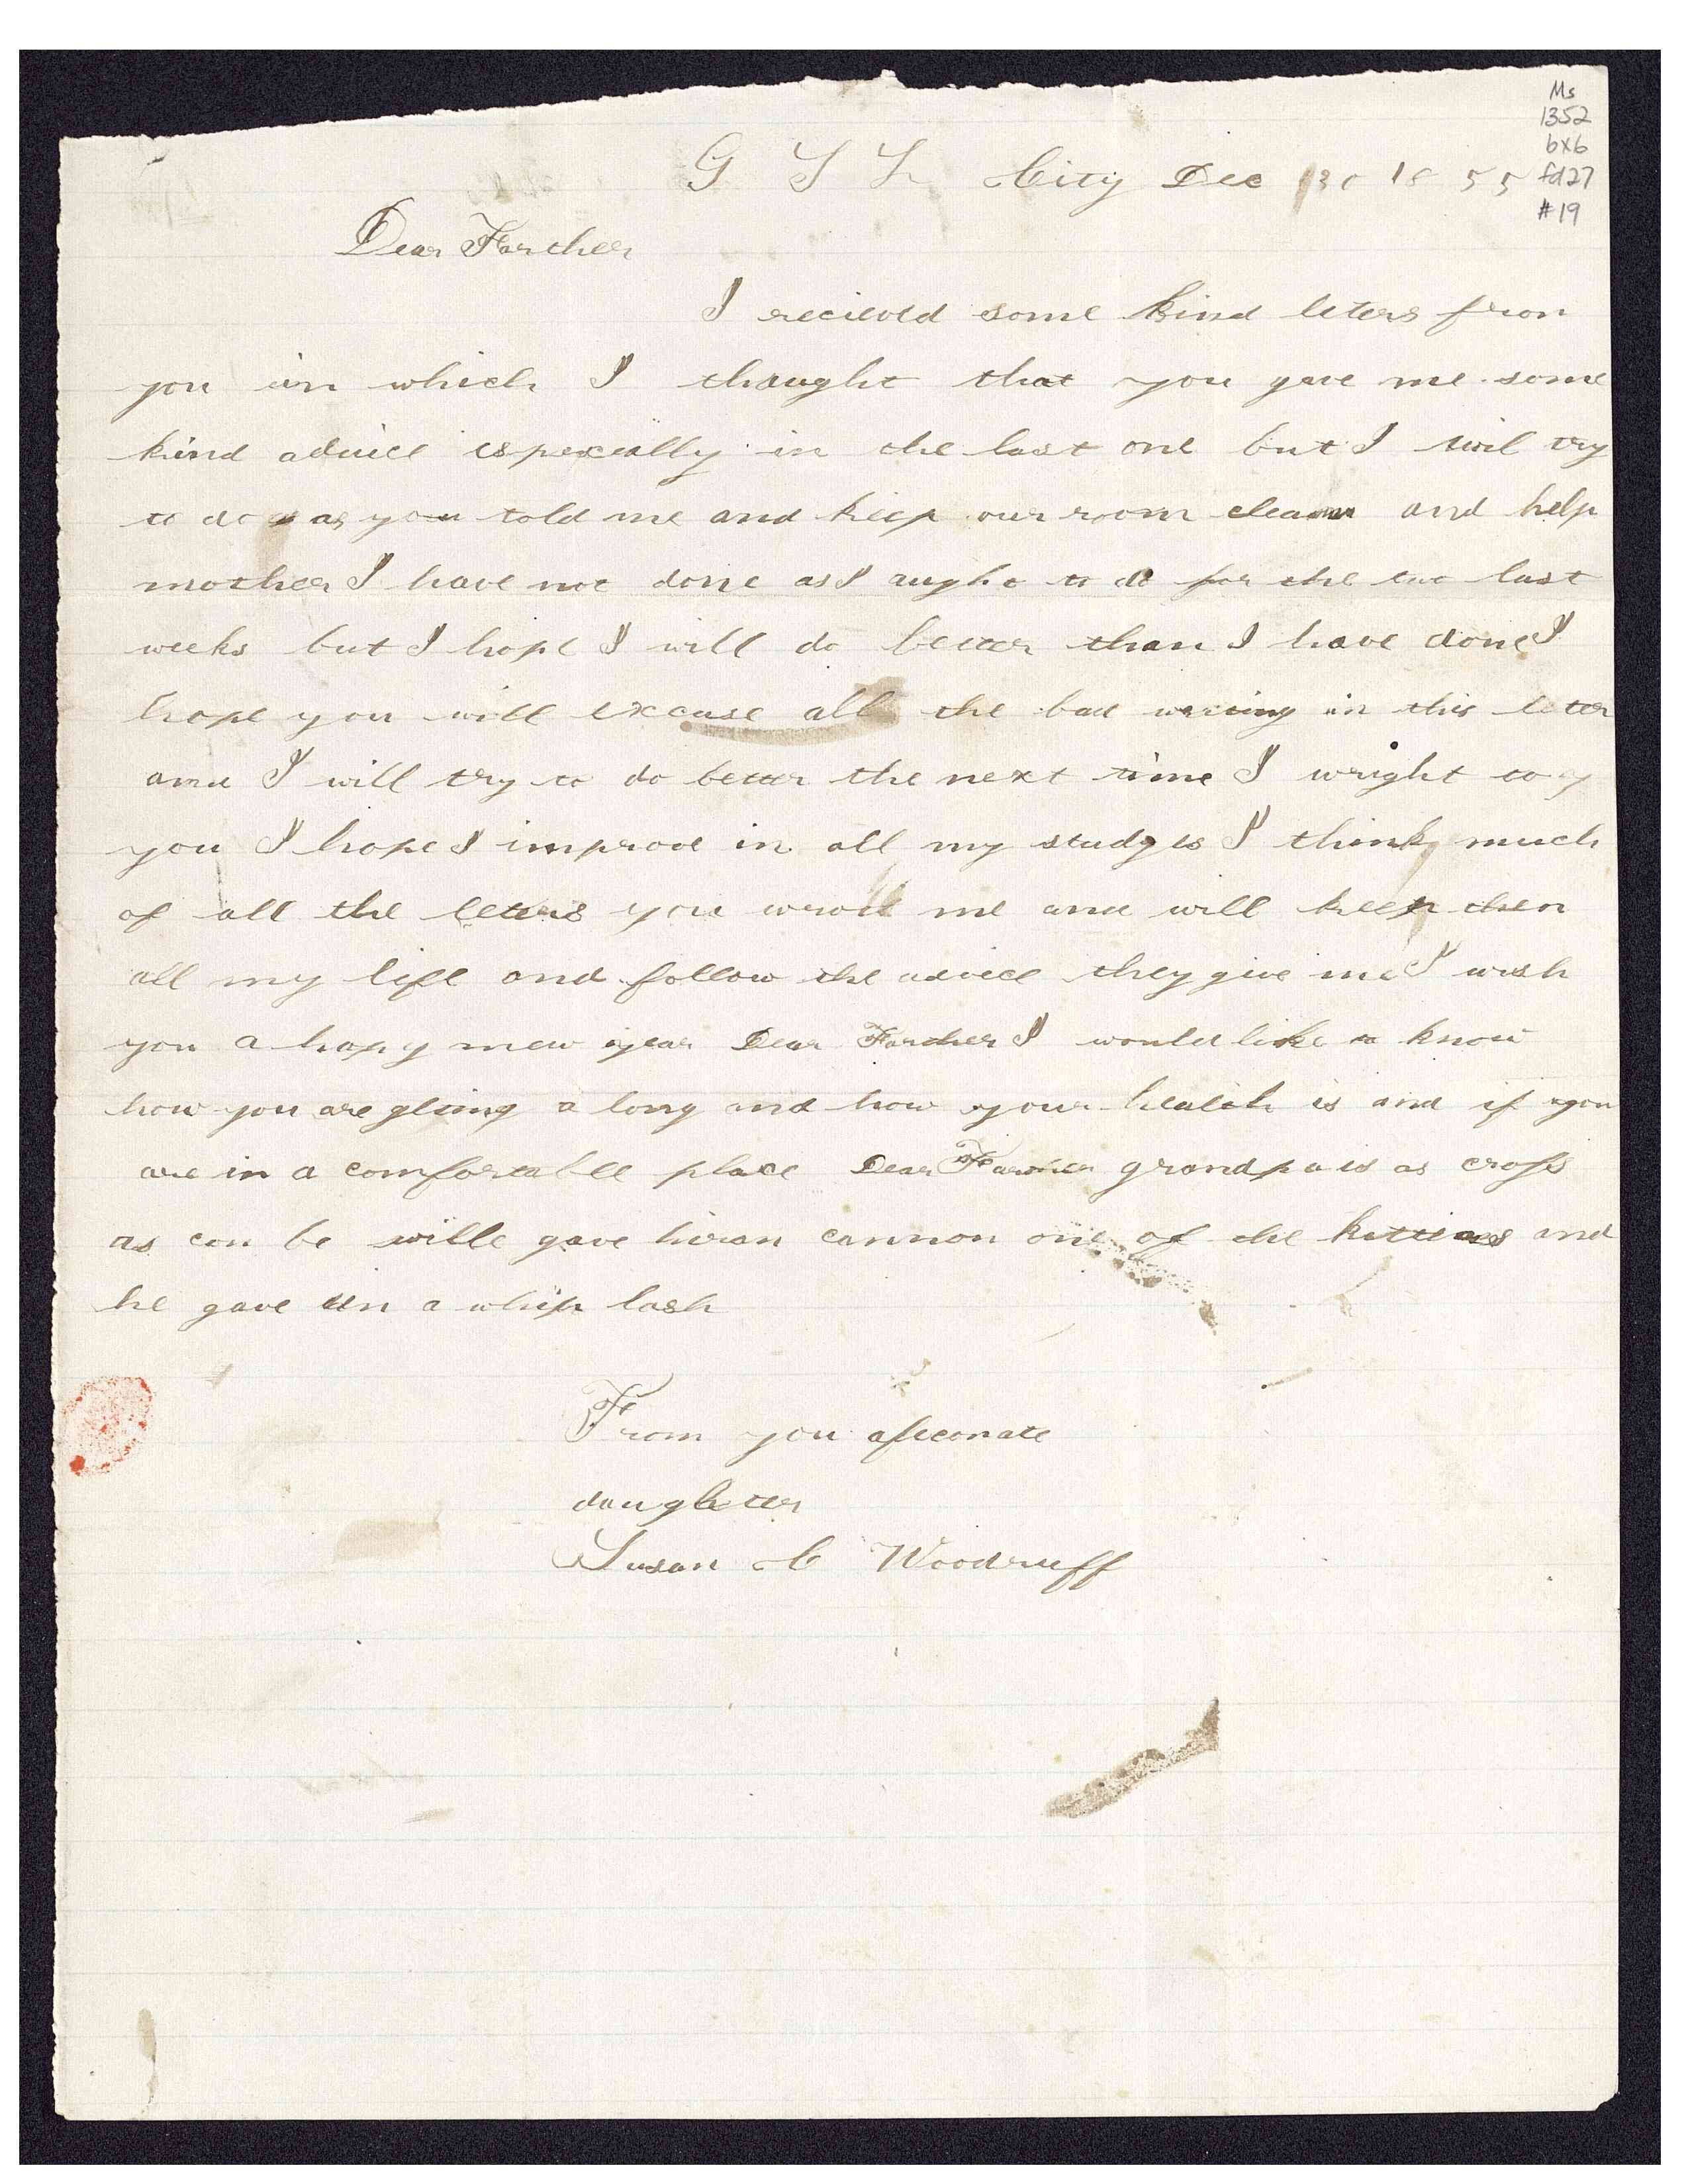 Ms
1352
bx6
fd27
#19
G S L City Dec 30 1855
Dear Farther
I recievd some kind leters fron
you in which I thaught that you gave me some
kind advice especially in the last one but I wil try
to do as you told me and keep our room clean and help
mother I have not done as I aught to do for the two last
weeks but I hope I will do better than I have done I
hope you will excuse all the bad writing in this letter
and I will try to do better the next time I wright to y
you I hope I improve in all my studyes I think much
of all the leters you wrote me and will keep then
all my life and follow the advice they give me I wish
you a hapy new year Dear Farther I would like to know
how you are geting a long and how your health is and if you
are in a comfortable place Dear Farther grandpa is as cross
as can be wille gave hiran cannon one of the kittens and
he gave in a whip lash
From you afeconate
daughter
Susan C Woodruff